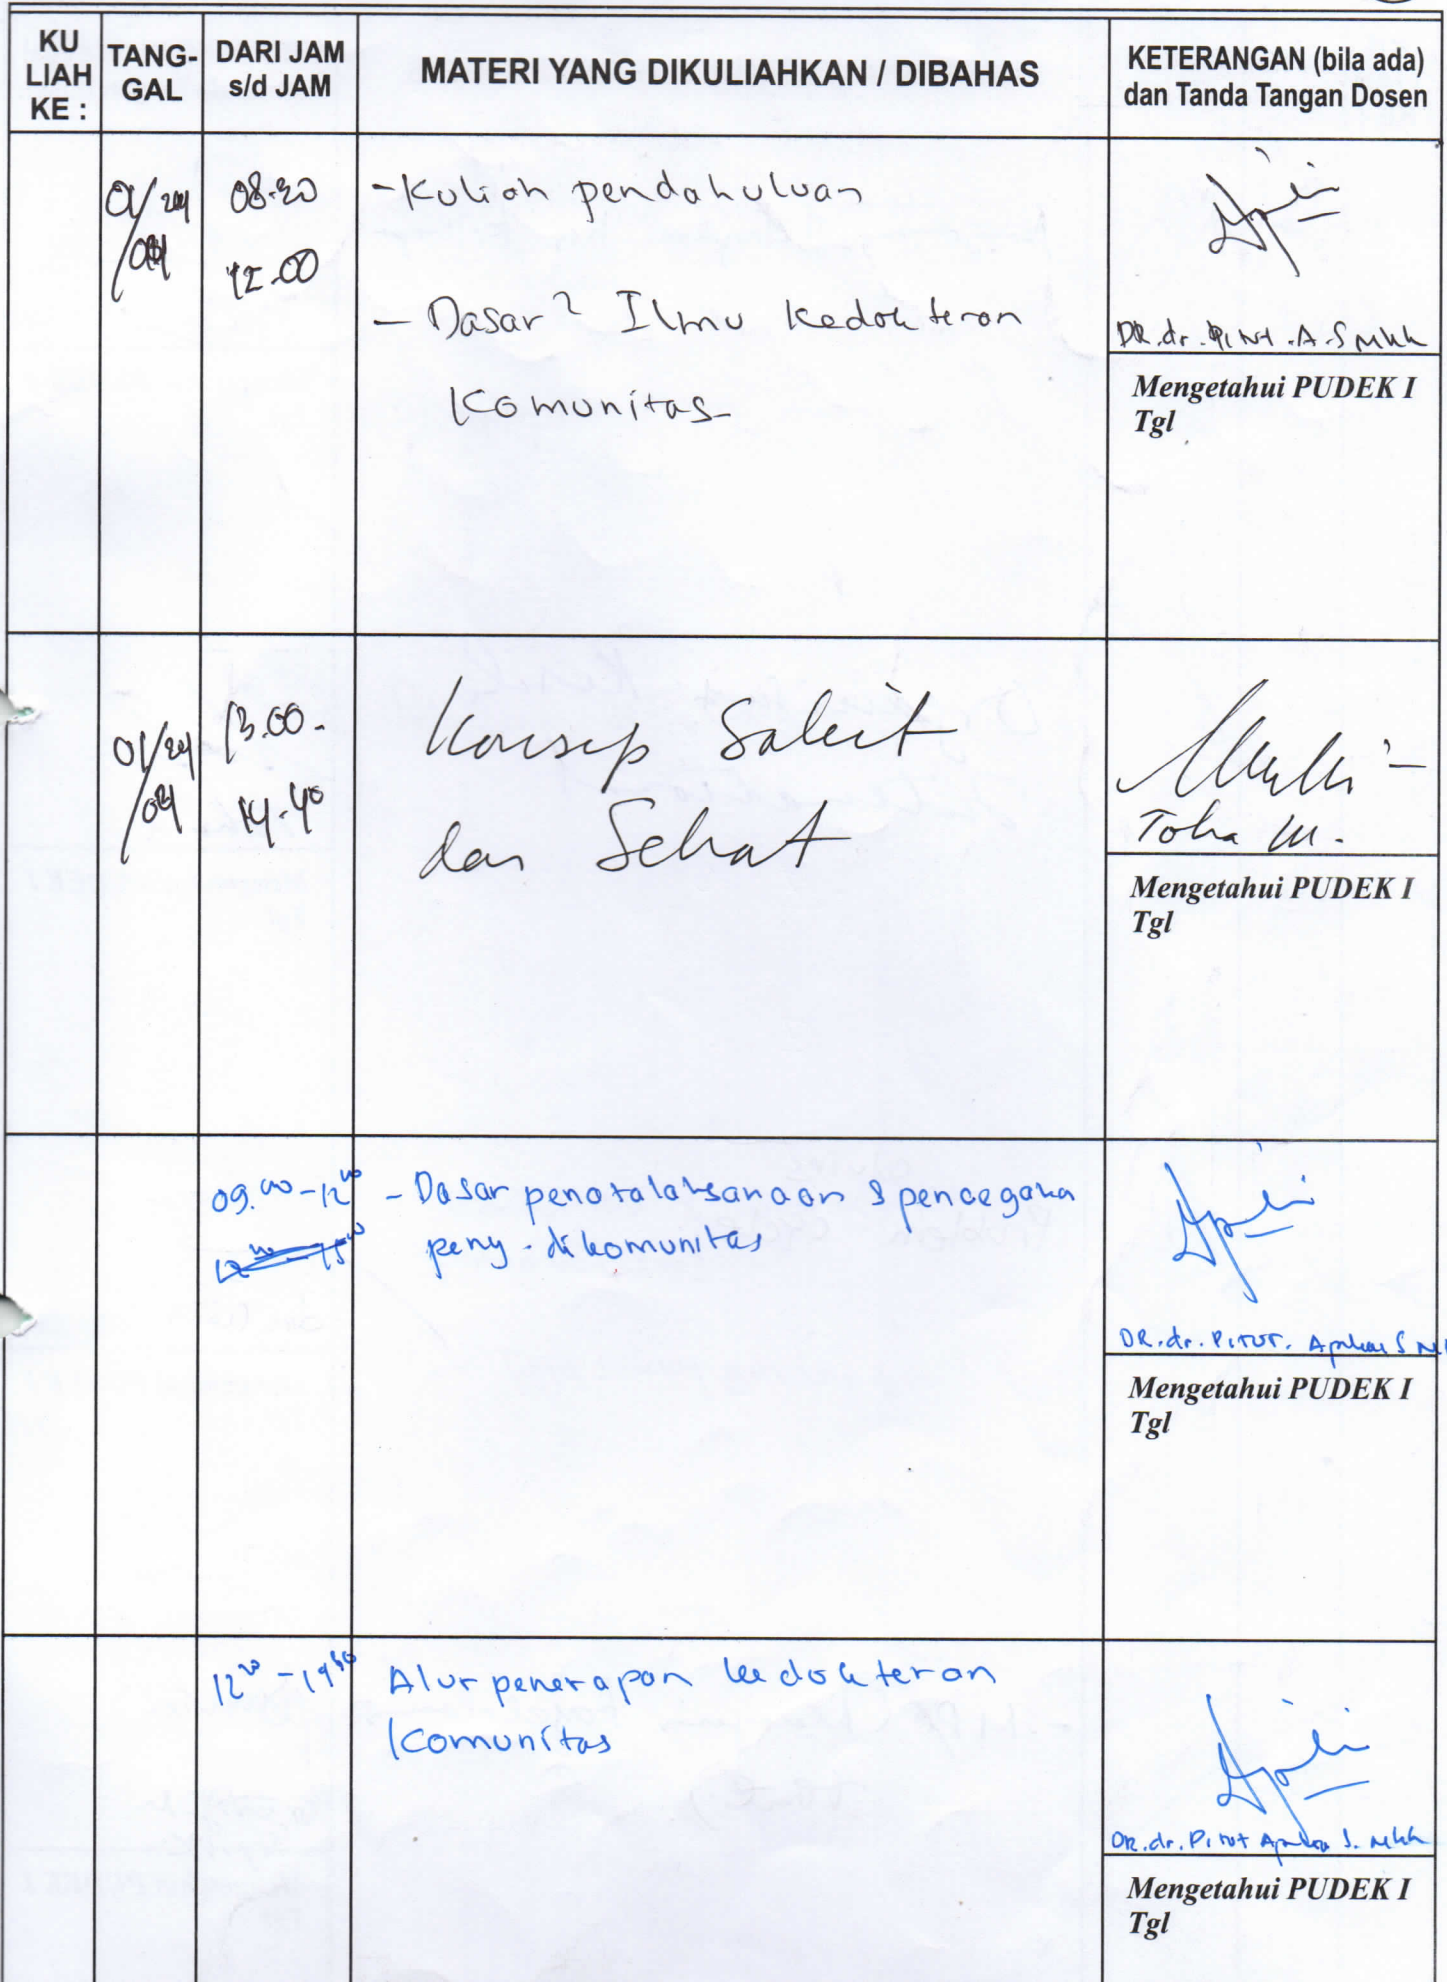 KU LIAH KE :
TANG-GAL
DARI JAM s/d JAM
MATERI YANG DIKULIAHKAN / DIBAHAS
KETERANGAN (bila ada) dan Tanda Tangan Dosen
- Kuliah pendahuluan
- Dasar² Ilmu Kedokteran
Komunitas
DR. dr.
Mengetahui PUDEK I
Tgl
13.00 -
14.40
Konsep Sakit
dan Sehat
Toha M.
Mengetahui PUDEK I
Tgl
09.00 - 12.00
- Dasar penatalaksanaan & pencegahan
peny. dikomunitas
DR. dr. Pitut.
Mengetahui PUDEK I
Tgl
Alur penerapan kedokteran
Komunitas
DR. dr. Pitut
Mengetahui PUDEK I
Tgl